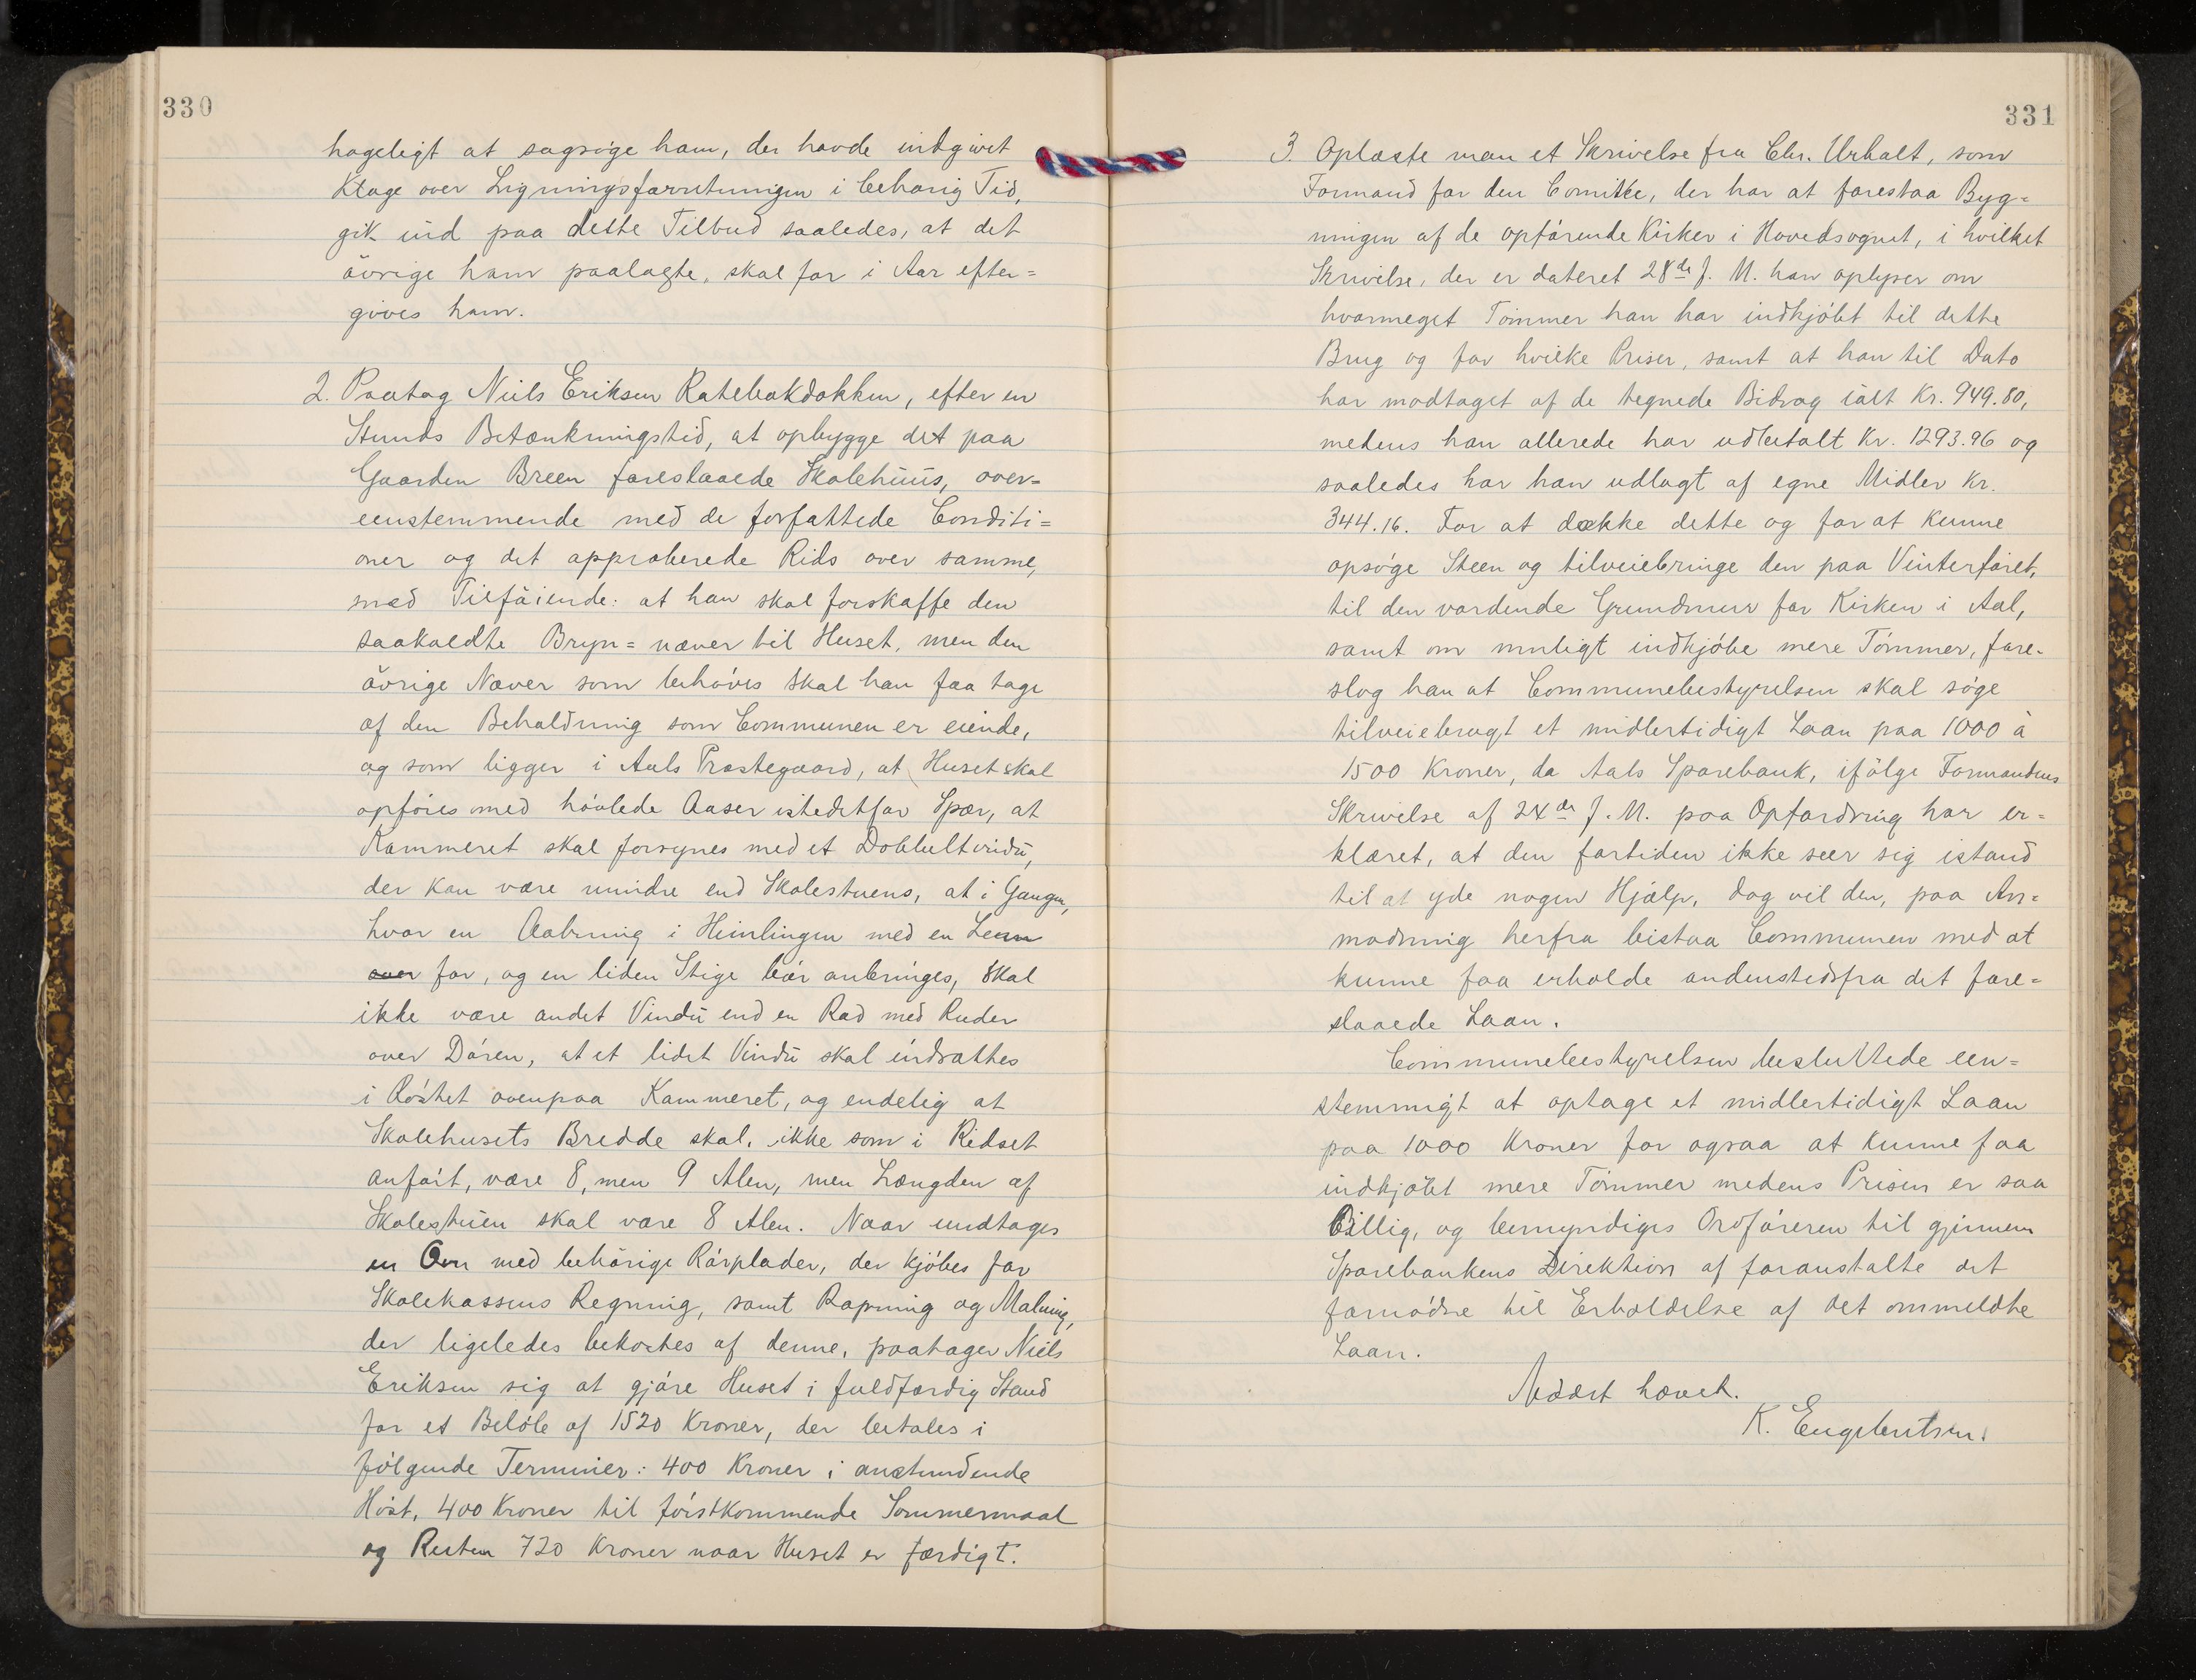 330
hageligt at sagsøge ham, der havde indgivet
Klage over Ligningsforretningen i behørig Tid,
gik ind paa dette Tilbud saaledes, at det
øvrige ham paalagte, skal for i Aar efter=
gives ham.
2. Paatog Niels Eriksen Ratebakdokken, efter en
Stunds Betænkningstid, at opbygge det paa
Gaarden Breen foreslaaede Skolehuus, over=
eenstemmende med de forfattede Conditi=
oner og det approberede Rids over samme,
med Tilføiende: at han skal forskaffe den
saakaldte Bryn=næver til Huset, men den
øvrige Næver som behøves skal han faa tage
af den Beholdning som Communen er eiende,
og som ligger i Aals Præstegaard, at Huset skal
opføres med høvlede Aaser istedetfor Spær, at
Kammeret skal forsynes med et Dobbeltvindu,
der kan være mindre end Skolestuens, at i Gangen,
hvor en Aabning i Himlingen med en Lem
over for, og en liden Stige bør anbringes, skal
ikke være andet Vindu end en Rad med Ruder
over Døren, at et lidet Vindu skal indsættes
i Røstet ovenpaa Kammeret, og endelig at
Skolehusets Bredde skal, ikke som i Ridset
anført, være 8, men 9 Alen, men Længden af
Skolestuen skal være 8 Alen. Naar undtages
en Ovn med behørige Rørplader, der kjøbes for
Skolekassens Regning, samt Rapning og Maling,
der ligeledes bekostes af denne, paatager Niels
Eriksen sig at gjøre Huset i fuldfærdig Stand
for et Beløb af 1520 Kroner, der betales i
følgende Terminer: 400 Kroner i anstundende
Høst, 400 Kroner til førstkommende Sommermaal
og Resten 720 Kroner naar Huset er færdigt.
331
3. Oplæste man et Skrivelse fra Chr. Urholt, som
Formand for den Comitee, der har at forestaa Byg=
ningen af de opførende Kirker i Hovedsognet, i hvilket
Skrivelse, der er dateret 28de f. M. han oplyser om
hvormeget Tømmer han har indkjøbt til dette
Brug og for hvilke Priser, samt at han til Dato
har modtaget af de tegnede Bidrag ialt Kr. 949.80,
medens han allerede har udbetalt Kr. 1293.96 og
saaledes har han udlagt af egne Midler Kr.
344.16. For at dække dette og for at kunne
opsøge Steen og tilveiebringe den paa Vinterføret,
til den vordende Grundmur for Kirken i Aal,
samt om muligt indkjøbe mere Tømmer, fore=
slog han at Communebestyrelsen skal søge
tilveiebragt et midlertidigt Laan paa 1000 à
1500 Kroner, da Aals Sparebank, ifølge Formandens
Skrivelse af 24de f. M. paa Opfordring har er=
klæret, at den fortiden ikke seer sig istand
til at yde nogen Hjælp, dog vil den, paa An=
modning herfra bistaa Communen med at
kunne faa erholde andenstedsfra det fore=
slaaede Laan.
Communebestyrelsen besluttede een=
stemmigt at optage et midlertidigt Laan
paa 1000 Kroner for ogsaa at kunne faa
indkjøbt mere Tømmer medens Prisen er saa
billig, og bemyndiges Ordføreren til gjennem
Sparebankens Direktion af foranstalte det
fornødne til Erholdelse af det ommeldte
Laan.
Mødet hævet.
K. Engebretsen.